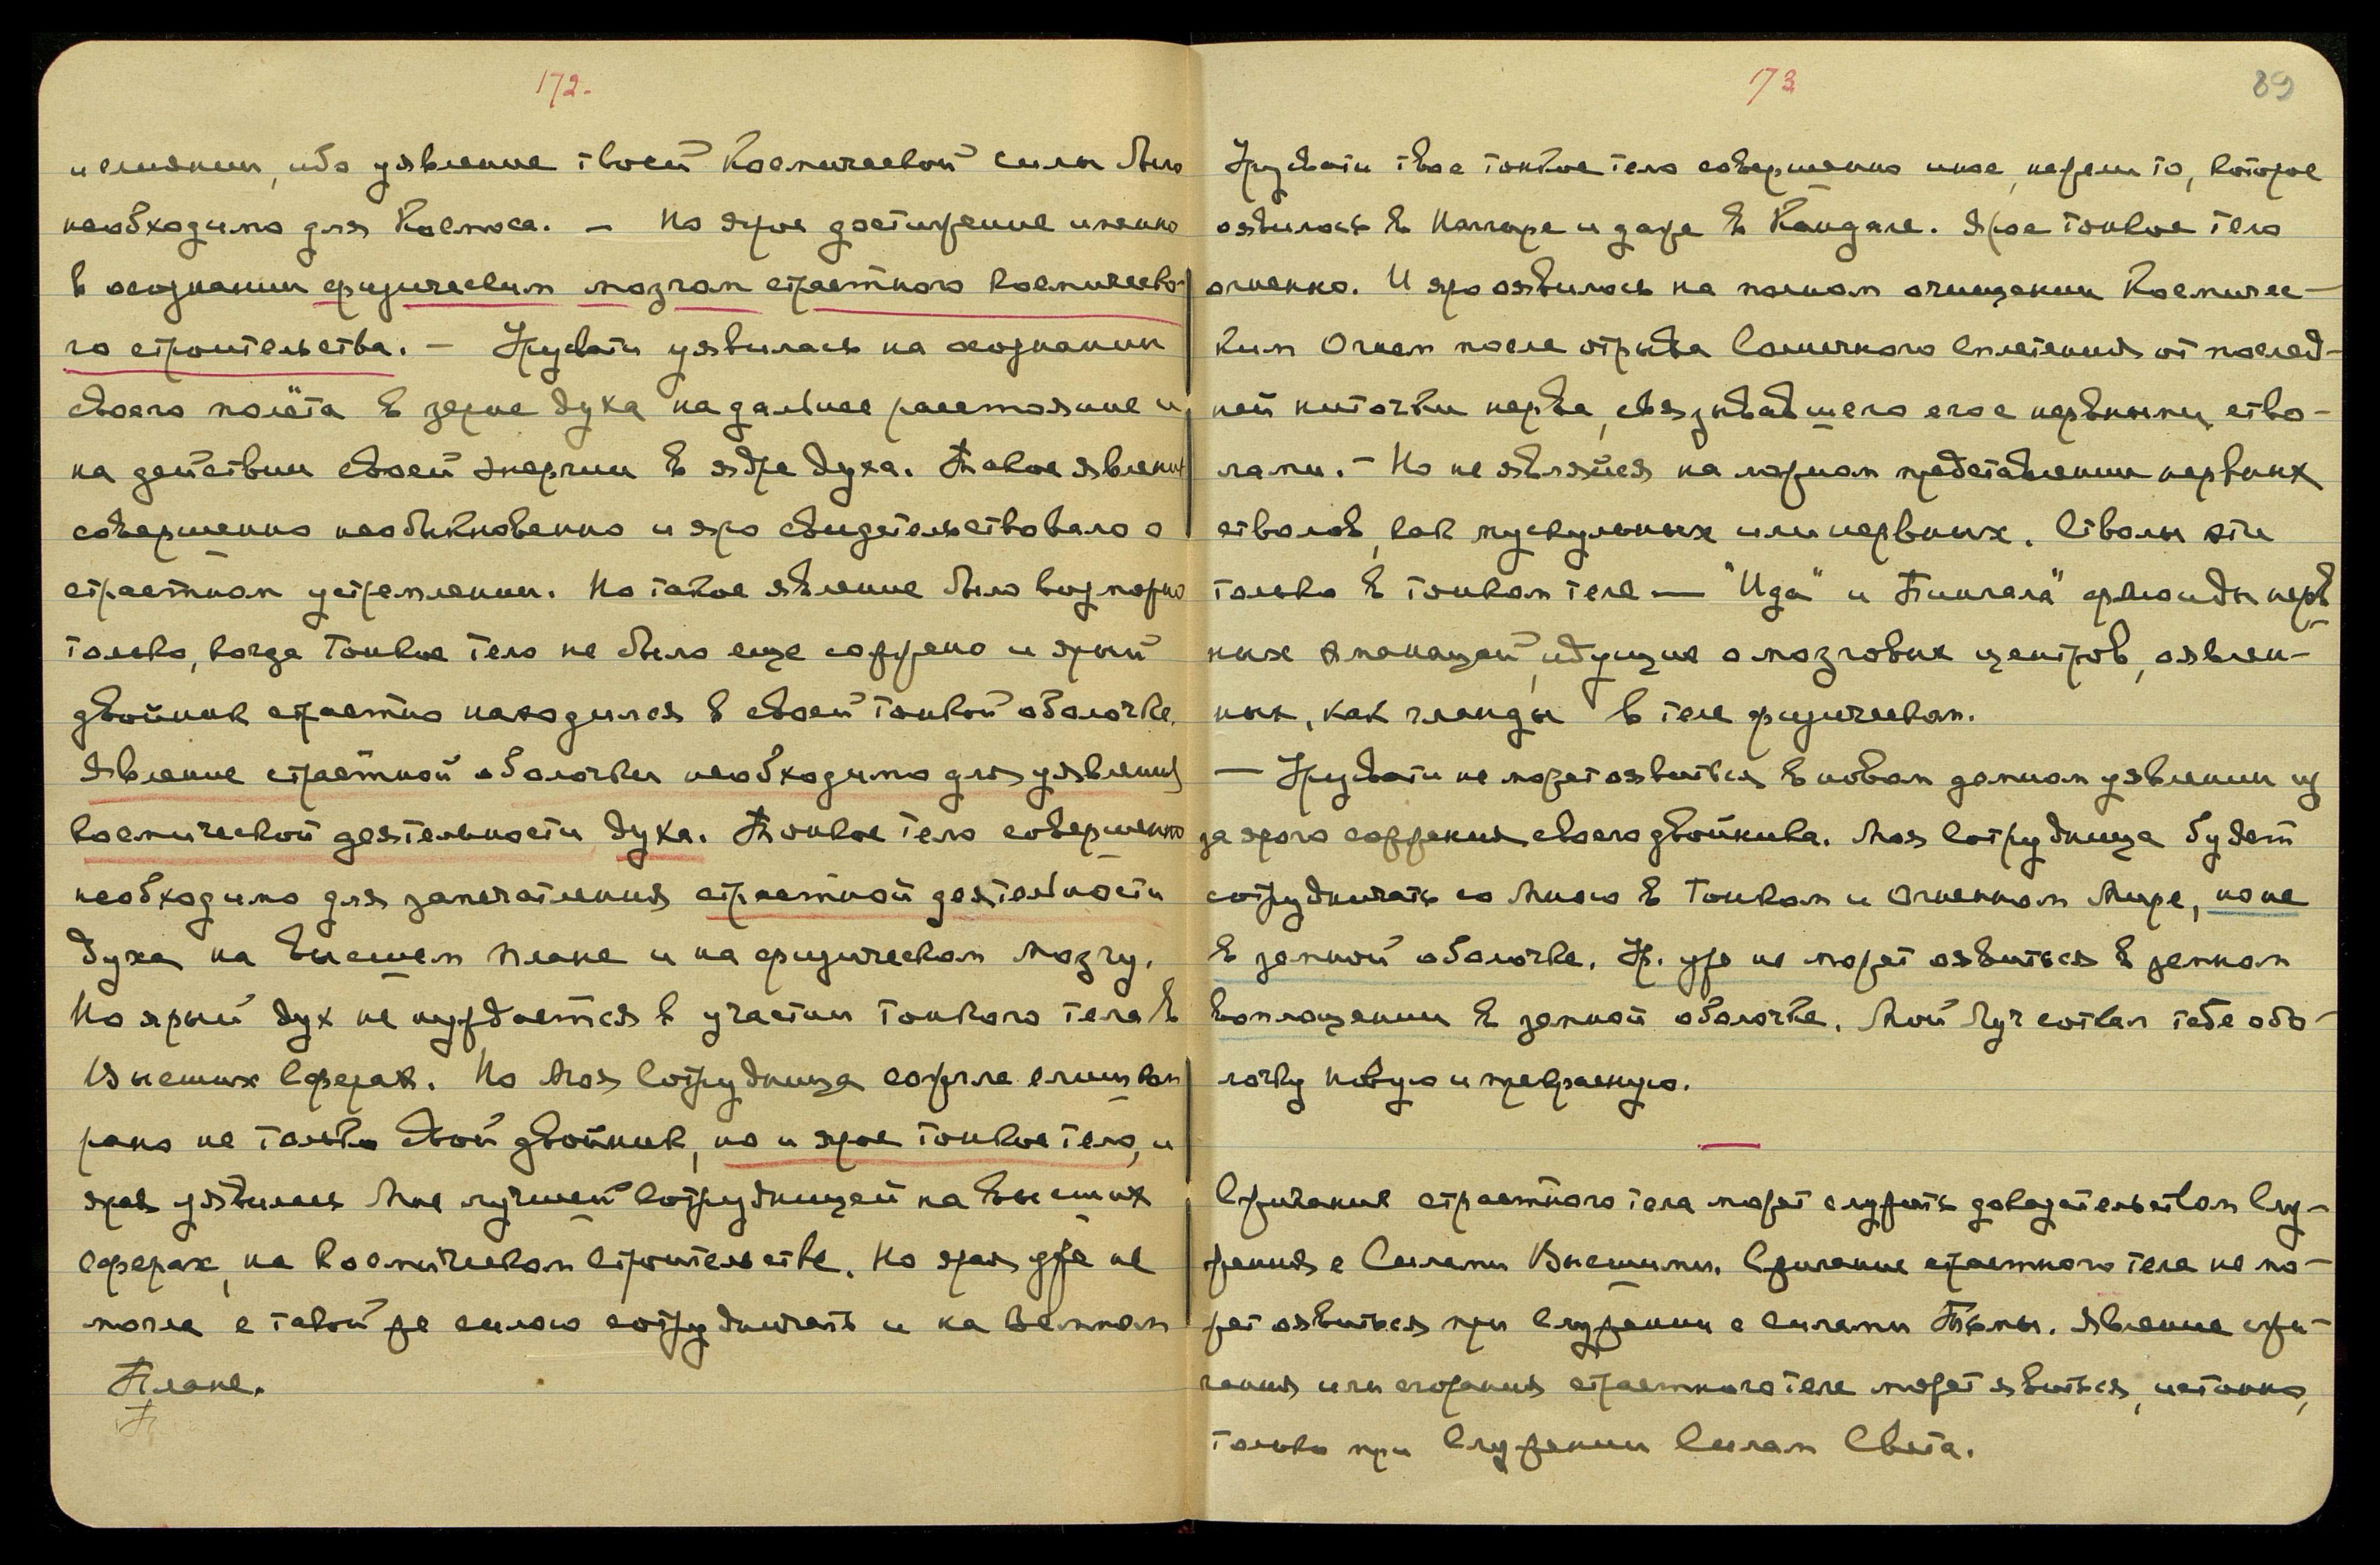 172.
и слиянии, ибо уявление твоей Космической силы было
необходимо для Космоса. – Но ярое достижение именно
в осознании физическим мозгом страстного космическо-
го строительства. – Урусвати уявилась на осознании
своего полёта в зерне духа на дальнее расстояние и
на действии своей энергии в ядре духа. Такое явление
совершенно необыкновенно и яро свидетельствовало о
страстном устремлении. Но такое явление было возможно
только, когда тонкое тело не было еще сожжено и ярый
двойник страстно находился в своей тонкой оболочке.
Явление страстной оболочки необходимо для уявления
космической деятельности духа. Тонкое тело совершенно
необходимо для запечатления страстной деятельности
духа на высшем плане и на физическом мозгу.
Но ярый дух не нуждается в участии тонкого тела в
Высших Сферах. Но Моя Сотрудница сожгла слишком
рано не только свой двойник, но и ярое тонкое тело, и
ярая уявилась Мне лучшей Сотрудницей на Высших
сферах, на Космическом Строительстве. Но ярая уже не
могла с такой же силою сотрудничать и на Земном
Плане.
173
89
Урусвати твое тонкое тело совершенно иное, нежели то, которое
оявилось в Наггаре и даже в Кандале. Ярое тонкое тело
огненно. И яро оявилось на полном очищении Космичес-
ким Огнем после отрыва Солнечного Сплетения от послед-
ней ниточки нерва, связывавшего его с нервными ство-
лами. – Но не являйся на ложном представлении нервных
стволов, как мускульных или нервных. Стволы эти
только в тонком теле — "Ида" и "Пингала" флюиды нерв-
ных эманаций, идущие о мозговых центров, оявлен-
ных, как гланды в теле физическом.
— Урусвати не может оявиться в новом земном уявлении из
за ярого сожжения своего двойника. Моя Сотрудница будет
сотрудничать со Мною в Тонком и Огненном Мире, но не
в земной оболочке. Ур. уже не может оявиться в земном
воплощении в земной оболочке. Мой Луч соткал тебе обо-
лочку новую и прекрасную.
Сжигание страстного тела может служить доказательством Слу-
жения с Силами Высшими. Сжигание страстного тела не мо-
жет оявиться при Служении с силами Тьмы. Явление сжи-
гания или сгорания страстного тела может явиться, истинно,
только при Служении Силам Света.